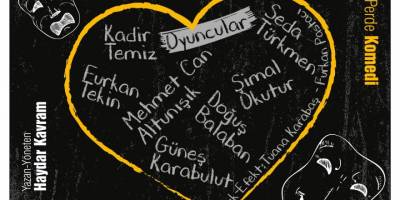 Yazan-Yöneten
Haydar Kavram
Oyuncular
Kadir
Temiz
Seda
Türkmen
Furkan
Tekin
Mehmet Can
Altunışık
Şimal
Okutur
Doğuş
Balaban
Güneş
Karabulut
Efekt: Tuana Karabaş - Furkan Pastacı
Perde Komedi